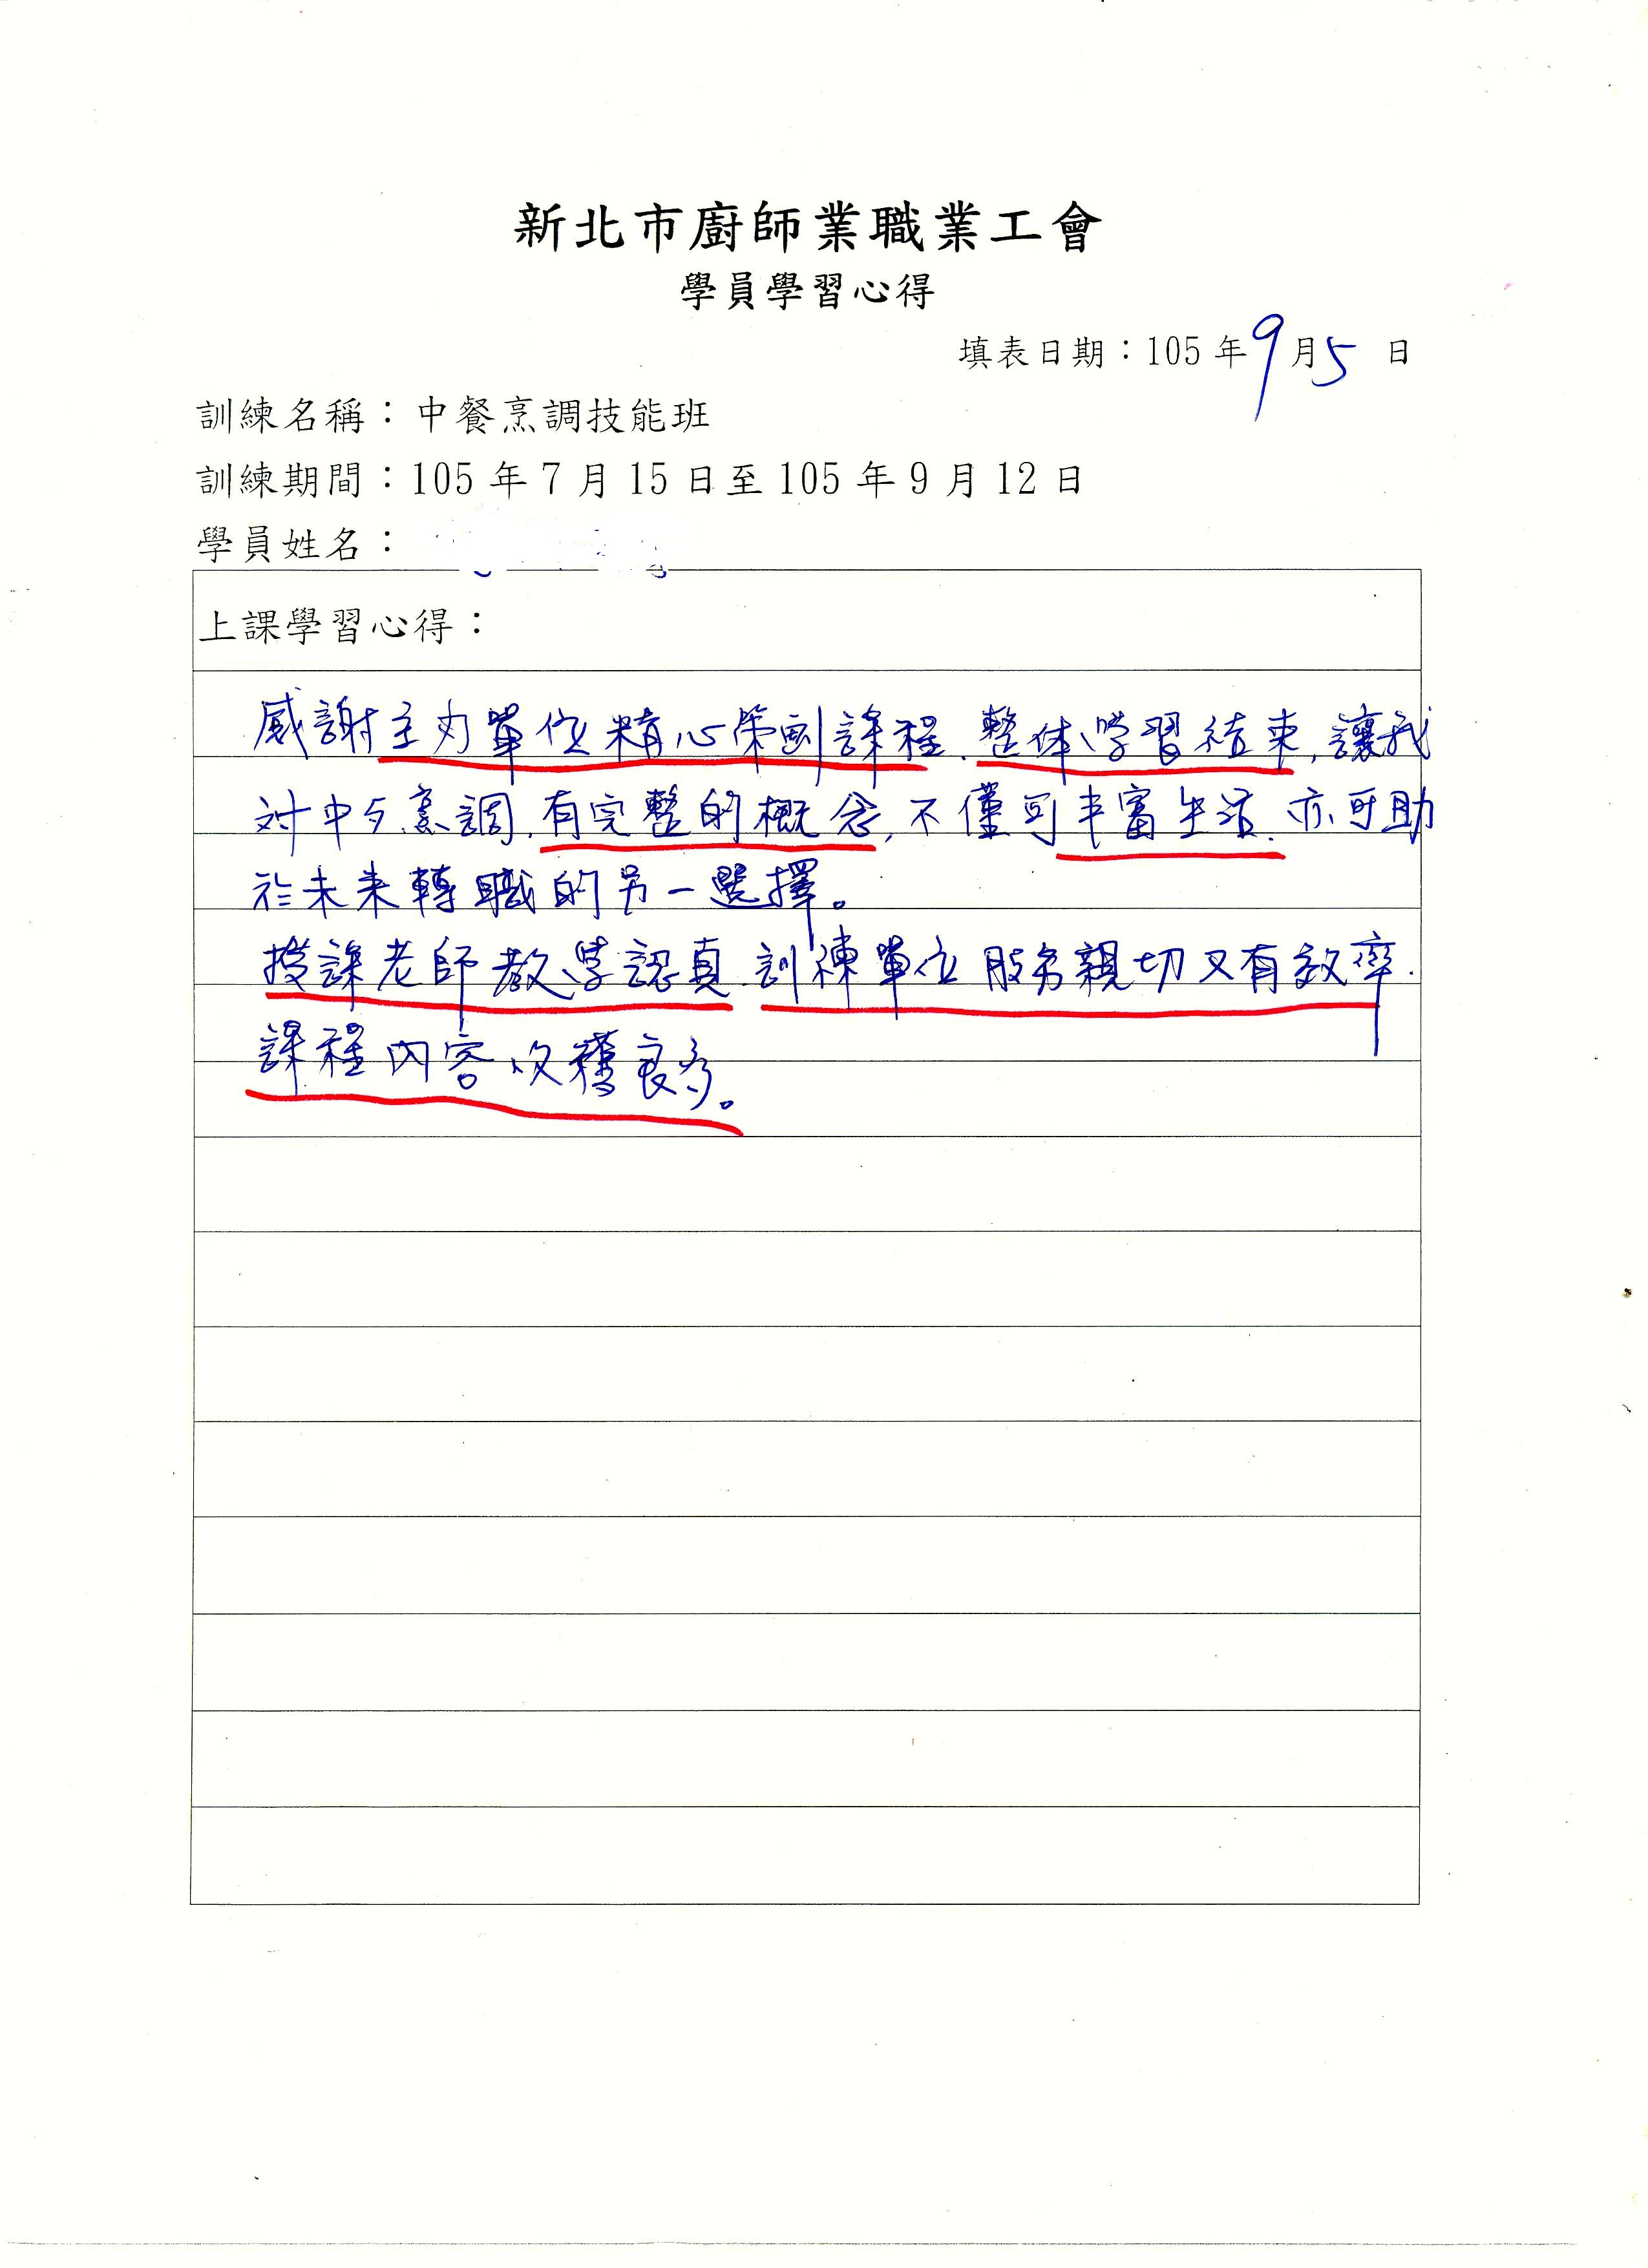 新北市廚師業職業工會
學員學習心得
填表日期：105年9月5日
訓練名稱：中餐烹調技能班
訓練期間：105年7月15日至105年9月12日
學員姓名：
上課學習心得：
感謝主办單位精心策劃課程.整体学習結束,讓我
对中歺烹調,有完整的概念,不僅可丰富生活.亦可助
於未来轉職的另一選擇。
授課老師教学認真.訓練單位服务親切又有效率.
課程內容收穫良多。